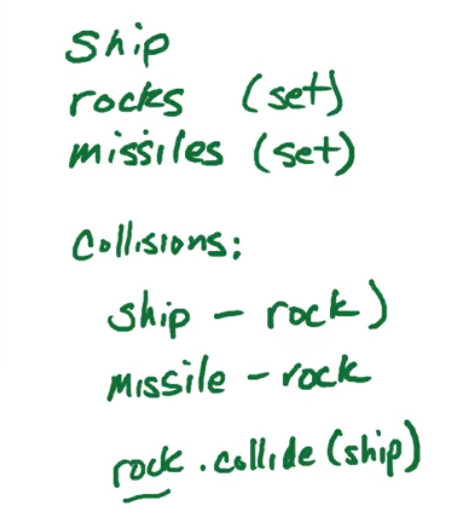 ship
rocks (set)
missiles (set)
Collisions:
ship - rock)
missile - rock
rock.collide(ship)